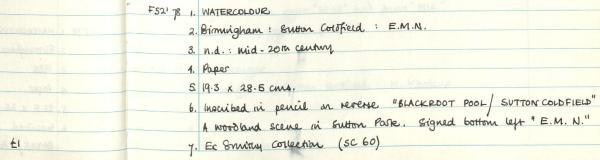 F52' 78 1. WATERCOLOUR
2. Birmingham : Sutton Coldfield : E.M.N.
3. n.d. : mid-20th century
4. Paper
5. 19.3 x 28.5 cms.
6. Inscribed in pencil on reverse "BLACKROOT POOL / SUTTON COLDFIELD"
A woodland scene in Sutton Park. Signed bottom left "E.M.N."
£1 7. Ex Collection (SC 60)